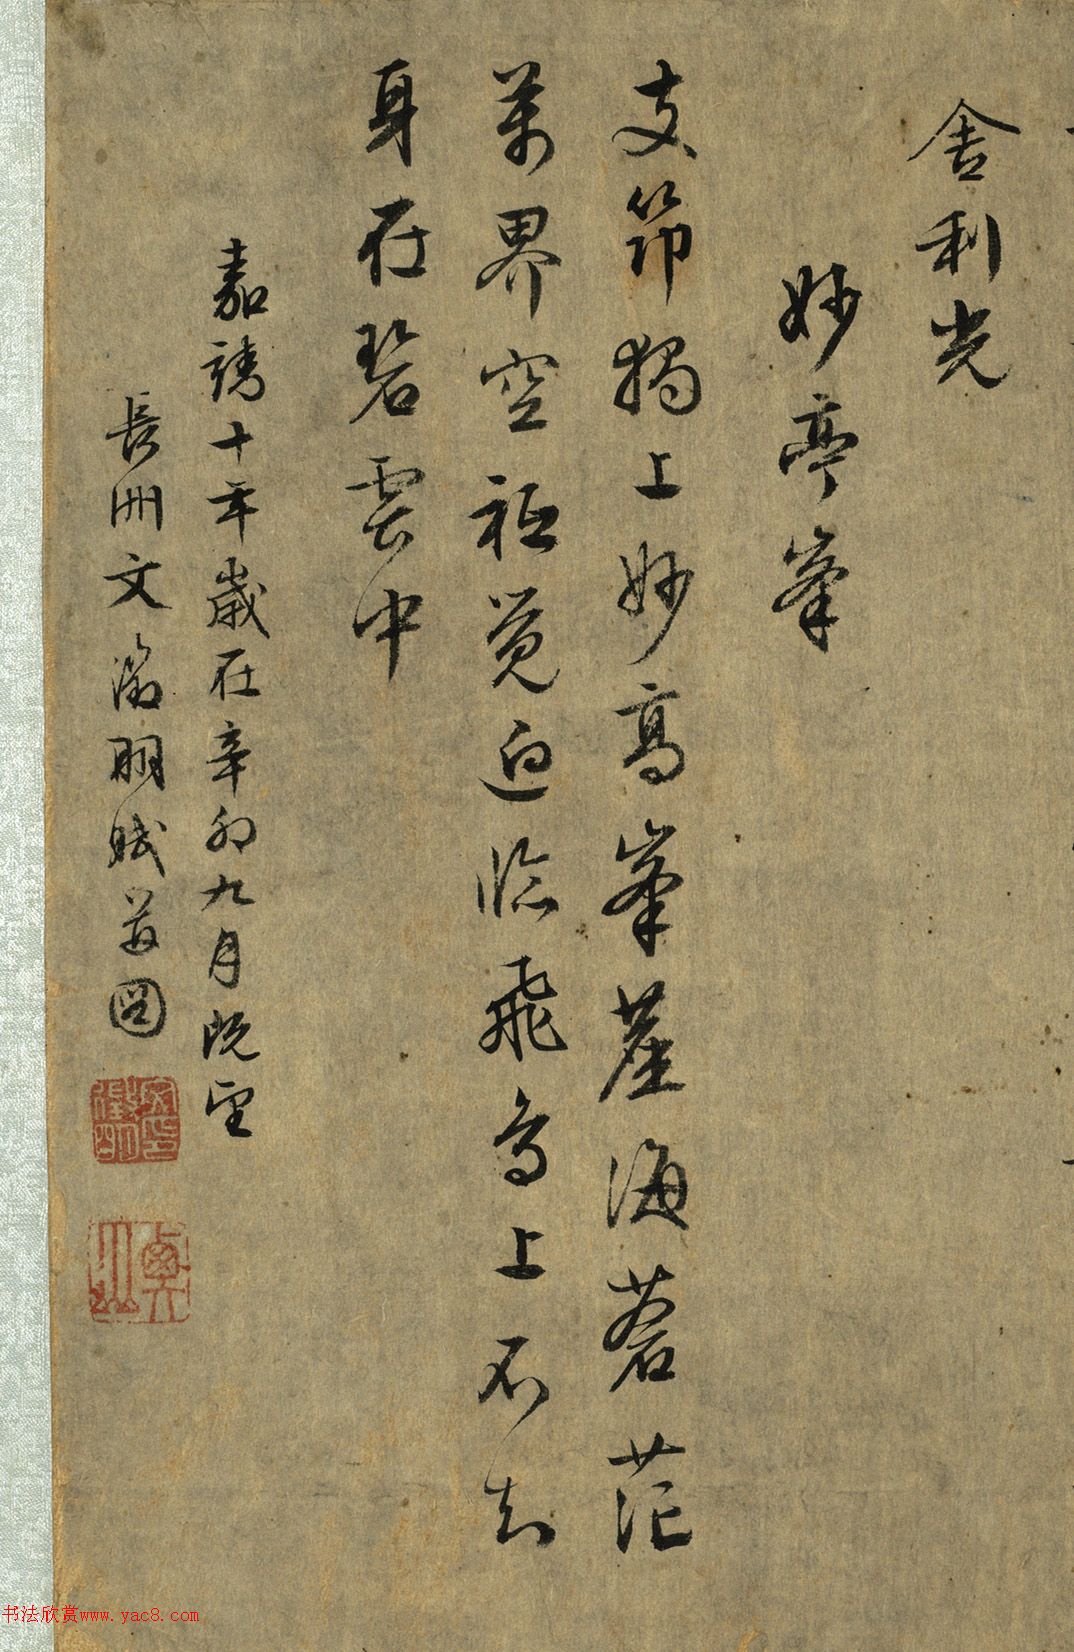 舍利光
妙亭峯
支笻獨上妙高峯塵海蒼茫
萬界空祗覺迫臨飛鳥上不知
身在碧雲中
嘉靖十年歲在辛卯九月既望
長洲文徵明賦並圖
書法欣赏www.yac8.com